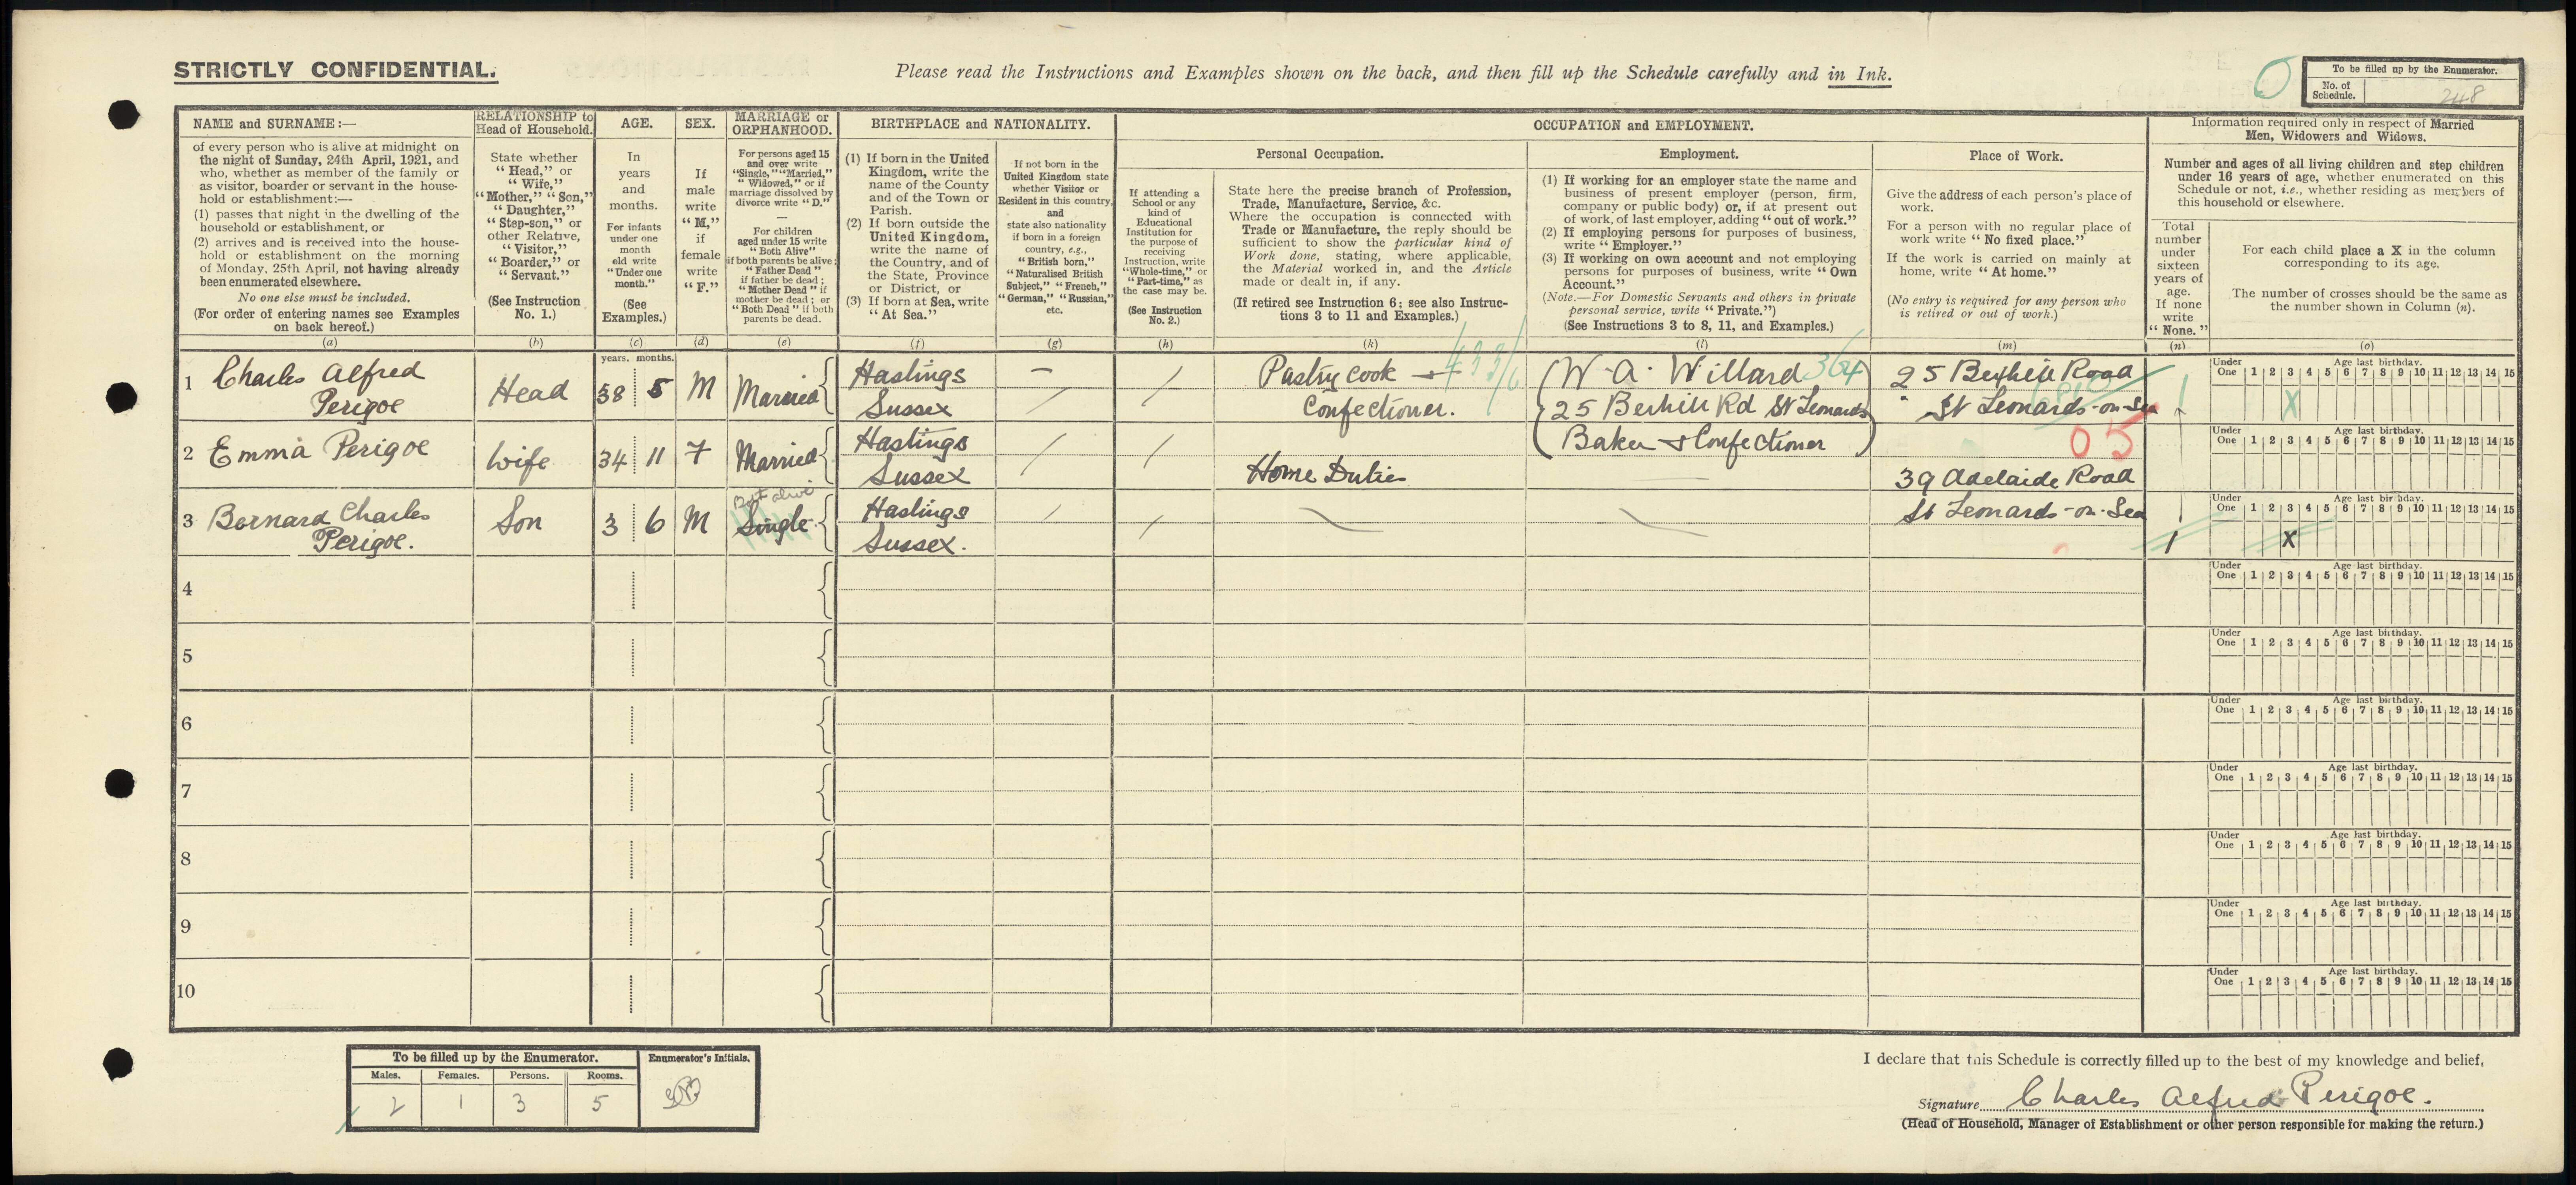 STRICTLY CONFIDENTIAL.
Please read the Instructions and Examples shown on the back, and then fill up the Schedule carefully and in Ink.
To be filled up by the Enumerator.
No. of Schedule. 248
NAME and SURNAME:—
of every person who is alive at midnight on
the night of Sunday, 24th April, 1921, and
who, whether as member of the family or
as visitor, boarder or servant in the house-
hold or establishment:—
(1) passes that night in the dwelling of the
household or establishment, or
(2) arrives and is received into the house-
hold or establishment on the morning
of Monday, 25th April, not having already
been enumerated elsewhere.
No one else must be included.
(For order of entering names see Examples
on back hereof.)
(a)
RELATIONSHIP to
Head of Household.
State whether
"Head," or
"Wife,"
"Mother," "Son,"
"Daughter,"
"Step-son," or
other Relative,
"Visitor,"
"Boarder," or
"Servant."
(See Instruction
No. 1.)
(b)
AGE.
In
years
and
months.
For infants
under one
month
old write
"Under one
month."
(See
Examples.)
(c)
SEX.
If
male
write
"M,"
if
female
write
"F."
(d)
MARRIAGE or
ORPHANHOOD.
For persons aged 15
and over write
"Single," "Married,"
"Widowed," or if
marriage dissolved by
divorce write "D."
—
For children
aged under 15 write
"Both Alive"
if both parents be alive;
"Father Dead"
if father be dead;
"Mother Dead" if
mother be dead; or
"Both Dead" if both
parents be dead.
(e)
BIRTHPLACE and NATIONALITY.
(1) If born in the United
Kingdom, write the
name of the County
and of the Town or
Parish.
(2) If born outside the
United Kingdom,
write the name of
the Country, and of
the State, Province
or District, or
(3) If born at Sea, write
"At Sea."
(f)
If not born in the
United Kingdom state
whether Visitor or
Resident in this country,
and
state also nationality
if born in a foreign
country, e.g.,
"British born,"
"Naturalised British
Subject," "French,"
"German," "Russian,"
etc.
(g)
OCCUPATION and EMPLOYMENT.
If attending a
School or any
kind of
Educational
Institution for
the purpose of
receiving
Instruction, write
"Whole-time," or
"Part-time," as
the case may be.
(See Instruction
No. 2.)
(h)
Personal Occupation.
State here the precise branch of Profession,
Trade, Manufacture, Service, &c.
Where the occupation is connected with
Trade or Manufacture, the reply should be
sufficient to show the particular kind of
Work done, stating, where applicable,
the Material worked in, and the Article
made or dealt in, if any.
(If retired see Instruction 6; see also Instruc-
tions 3 to 11 and Examples.)
(k)
Employment.
(1) If working for an employer state the name and
business of present employer (person, firm,
company or public body) or, if at present out
of work, of last employer, adding "out of work."
(2) If employing persons for purposes of business,
write "Employer."
(3) If working on own account and not employing
persons for purposes of business, write "Own
Account."
(Note.—For Domestic Servants and others in private
personal service, write "Private.")
(See Instructions 3 to 8, 11, and Examples.)
(l)
Place of Work.
Give the address of each person's place of
work.
For a person with no regular place of
work write "No fixed place."
If the work is carried on mainly at
home, write "At home."
(No entry is required for any person who
is retired or out of work.)
(m)
Information required only in respect of Married
Men, Widowers and Widows.
Number and ages of all living children and step children
under 16 years of age, whether enumerated on this
Schedule or not, i.e., whether residing as members of
this household or elsewhere.
Total
number
under
sixteen
years of
age.
If none
write
"None."
(n)
For each child place a X in the column
corresponding to its age.
The number of crosses should be the same as
the number shown in Column (n).
(o)
years. months.
1 Charles Alfred Perigoe Head 38 5 M Married Hastings Sussex
Pastry cook Confectioner. 433/6
W. A. Willard 364
25 Bexhill Rd St Leonards
Baker & Confectioner
25 Bexhill Road
St Leonards-on-Sea
1 X
05
2 Emma Perigoe Wife 34 11 F Married Hastings Sussex
Home Duties
39 Adelaide Road
St Leonards-on-Sea
3 Bernard Charles Perigoe. Son 3 6 M Single Both alive Hastings Sussex.
1 X
4
5
6
7
8
9
10
Under One 1 2 3 4 5 6 7 8 9 10 11 12 13 14 15
Age last birthday.
To be filled up by the Enumerator.
Enumerator's Initials.
Males. Females. Persons. Rooms.
2 1 3 5
I declare that this Schedule is correctly filled up to the best of my knowledge and belief,
Signature Charles Alfred Perigoe.
(Head of Household, Manager of Establishment or other person responsible for making the return.)